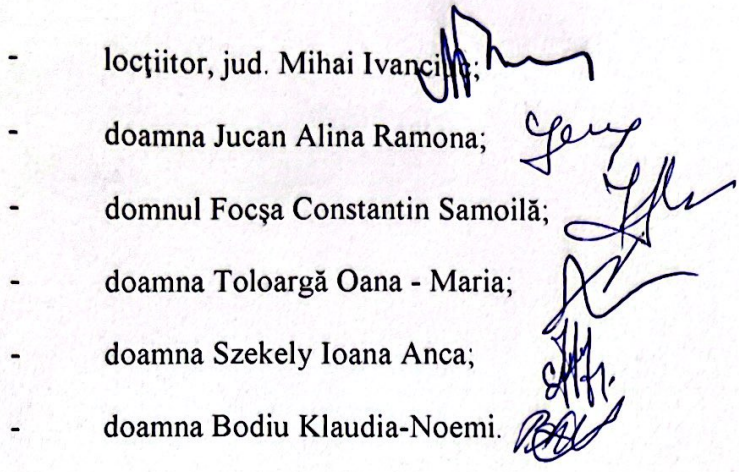 - locţiitor, jud. Mihai Ivanciuc;
- doamna Jucan Alina Ramona;
- domnul Focşa Constantin Samoilă;
- doamna Toloargă Oana - Maria;
- doamna Szekely Ioana Anca;
- doamna Bodiu Klaudia-Noemi.